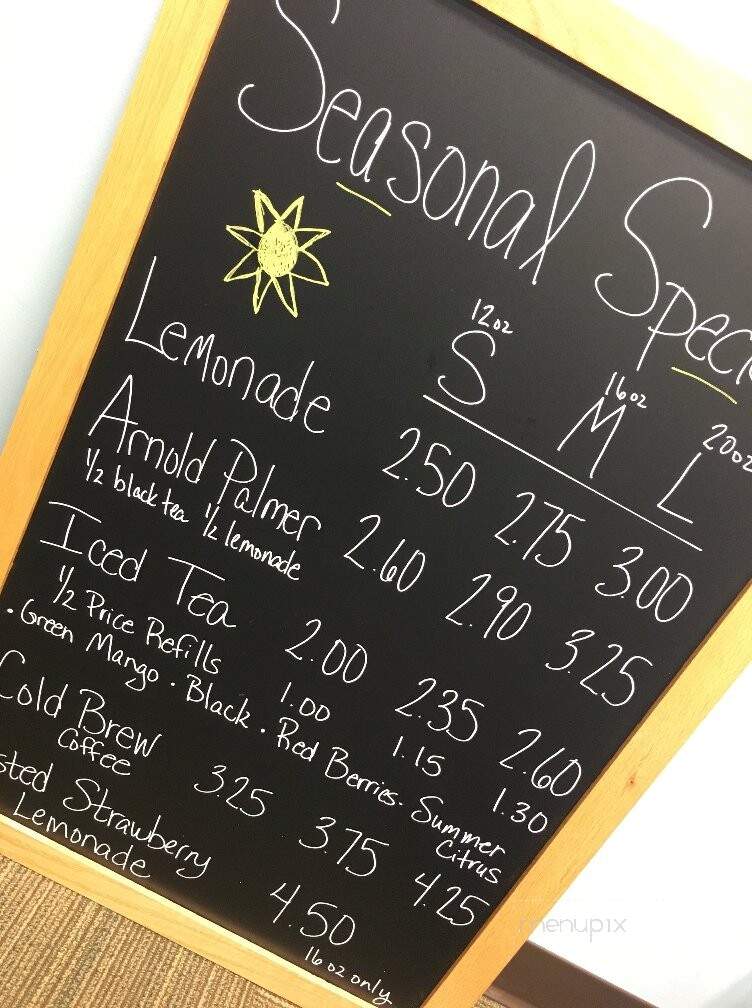 Seasonal Speci
12oz 16oz 20oz
S M L
Lemonade 2.50 2.75 3.00
Arnold Palmer 2.60 2.90 3.25
1/2 black tea 1/2 lemonade
Iced Tea 2.00 2.35 2.60
1/2 Price Refills 1.00 1.15 1.30
· Green Mango · Black · Red Berries · Summer Citrus
Cold Brew 3.25 3.75 4.25
Coffee
sted Strawberry 4.50
Lemonade 16 oz only
menupix